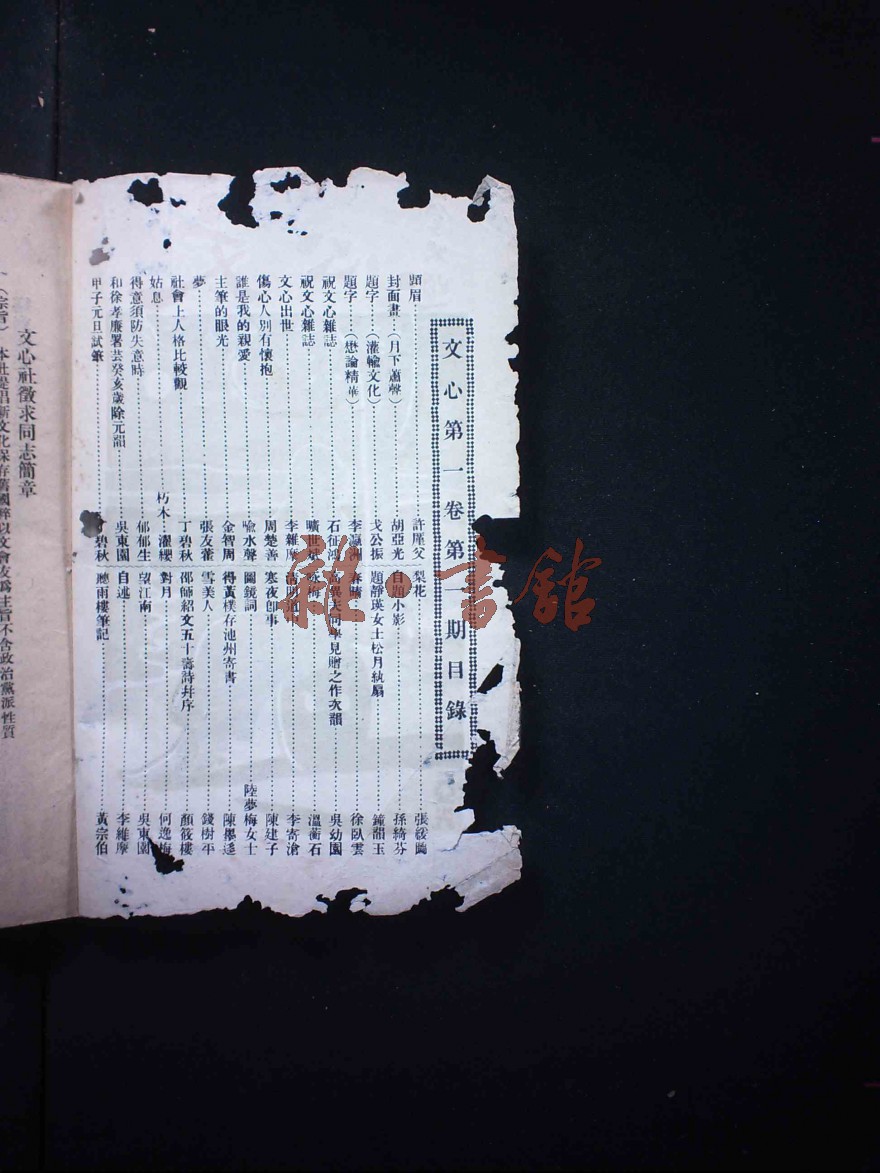 文心第一卷第一期目錄
題眉 許廑父
封面畫（月下簫聲） 胡亞光
題字（灌輸文化） 戈公振
題字（懋論精華） 李瀛洲
祝文心雜誌 石征鴻
祝文心雜誌 曠世斌
文心出世 李維摩
傷心人別有懷抱 周楚善
誰是我的親愛 喩水聲
主筆的眼光 金智周
夢 張友蘅
社會上人格比較觀 丁碧秋
姑息 朽木 濯纓
得意須防失意時 郁郁生
和徐孝廉署芸癸亥歲除元韻 吳東園
甲子元旦試筆 碧秋
梨花
自題小影 孫綺芬
題靜瑛女士松月紈扇 鐘韻玉
春晴 徐臥雲
見贈之作次韻 吳幼園
詠梅 溫蘅石
李寄滄
寒夜卽事 陳建子
圖鏡詞 陸夢梅女士
得黃樸存池州寄書 陳墨迻
雪美人 錢樹平
邵師紹文五十壽詩幷序 顏筱樓
對月 何逸梅
望江南 吳東園
自述 李維摩
聽雨樓筆記 黃宗伯
文心社徵求同志簡章
一（宗旨）本社提倡新文化保存舊國粹以文會友爲主旨不含政治黨派性質
雜·書舘